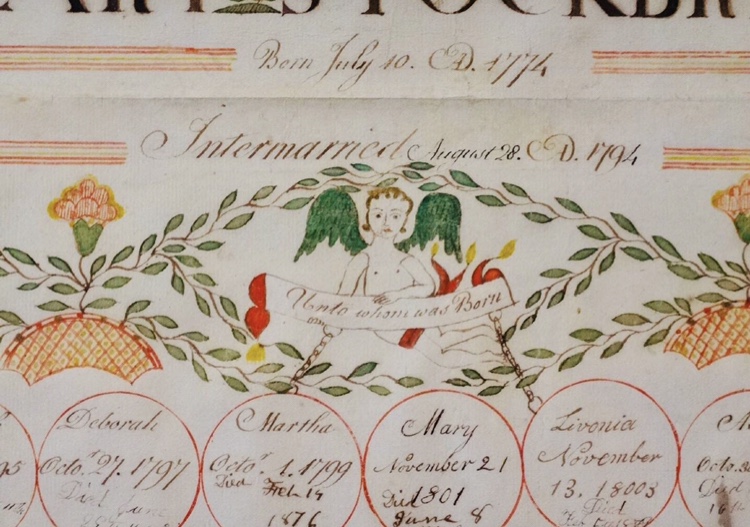 Born July 10. AD. 1774
Intermarried August 28. AD. 1794
Unto whom was Born
Deborah
Octo. 27. 1797
Died June
Martha
Octo. 1. 1799
Died Feb 14
1876
Mary
November 21
1801
Died
June 8
Livonia
November
13. 18003
Died
Octo. 3
Died